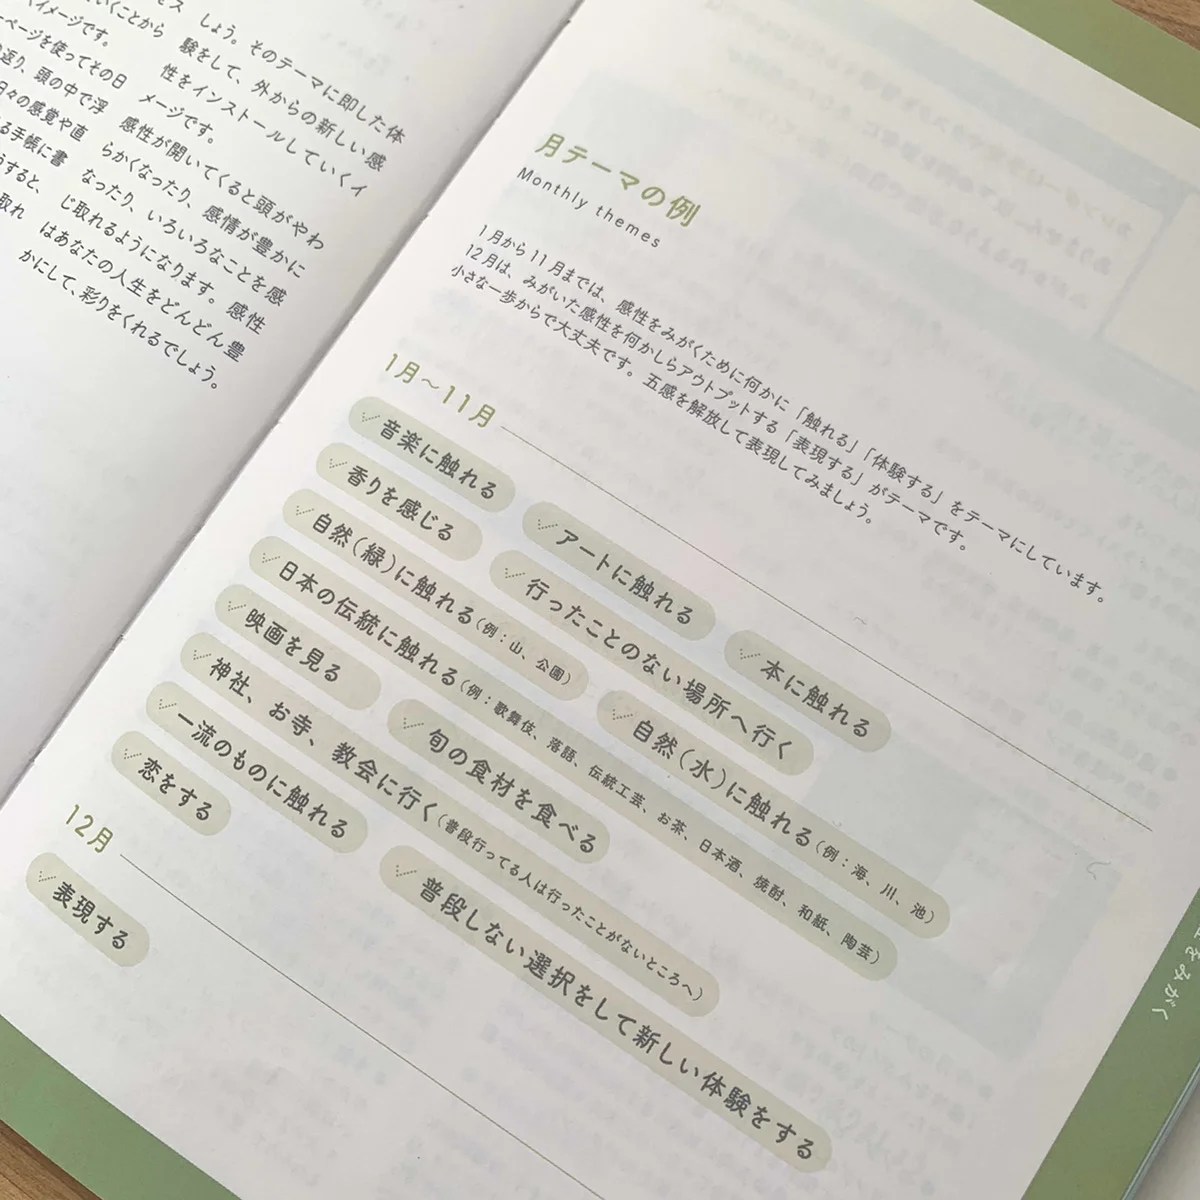 しょう。そのテーマに即した体
験をして、外からの新しい感
性をインストールしていくイ
メージです。
感性が開いてくると頭がやわ
らかくなったり、感情が豊かに
なったり、いろいろなことを感
じ取れるようになります。感性
はあなたの人生をどんどん豊
かにして、彩りをくれるでしょう。
いくことから
イメージです。
ページを使ってその日
返り、頭の中で浮
日々の感覚や直
る手帳に書
うすると、
取れ
月テーマの例
Monthly themes
1月から11月までは、感性をみがくために何かに「触れる」「体験する」をテーマにしています。
12月は、みがいた感性を何かしらアウトプットする「表現する」がテーマです。
小さな一歩からで大丈夫です。五感を解放して表現してみましょう。
1月〜11月
音楽に触れる
アートに触れる
本に触れる
香りを感じる
行ったことのない場所へ行く
自然(緑)に触れる(例:山、公園)
自然(水)に触れる(例:海、川、池)
日本の伝統に触れる(例:歌舞伎、落語、伝統工芸、お茶、日本酒、焼酎、和紙、陶芸)
映画を見る
旬の食材を食べる
神社、お寺、教会に行く(普段行ってる人は行ったことがないところへ)
一流のものに触れる
普段しない選択をして新しい体験をする
恋をする
12月
表現する
をみがく